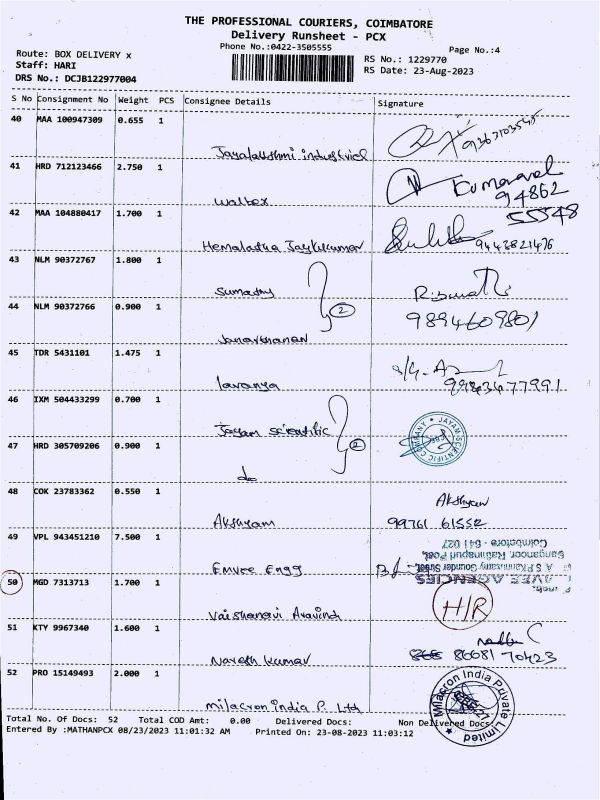 THE PROFESSIONAL COURIERS, COIMBATORE
Delivery Runsheet - PCX
Phone No.:0422-3505555
Page No.:4
Route: BOX DELIVERY x
Staff: HARI
DRS No.: DCJB122977004
RS No.: 1229770
RS Date: 23-Aug-2023
S No Consignment No Weight PCS Consignee Details Signature
40 MAA 100947309 0.655 1
Jayalakshmi industrial
41 HRD 712123466 2.750 1
walbex
Kumaravel
94862
55548
42 MAA 104880417 1.700 1
Hemalatha Jaykukumar
9443821476
43 NLM 90372767 1.800 1
Sumathy
2
44 NLM 90372766 0.900 1
Janarthanan
9894609801
45 TDR 5431101 1.475 1
lavanya
9943477991
46 IXM 504433299 0.700 1
Jayam scientific
2
JAYAM SCIENTIFIC COMPANY
CBE
47 HRD 305709206 0.900 1
do
48 COK 23783362 0.550 1
Akshyam
Akshyam
99761 61552
49 VPL 943451210 7.500 1
Emvee Engg
AVEE AGENCIES
A S P Kannusamy Gounder Street,
Ganganoor, Rathinapuri Post,
Coimbatore - 641 027
50 MGD 7313713 1.700 1
Vaishanavi Aravind
H/R
51 KTY 9967340 1.600 1
Naresh kumar
86081 70423
52 PRO 15149493 2.000 1
Milacron india P. Ltd
Milacron India Private Limited
Total No. Of Docs: 52 Total COD Amt: 0.00 Delivered Docs: Non Delivered Docs:
Entered By :MATHANPCX 08/23/2023 11:01:32 AM Printed On: 23-08-2023 11:03:12